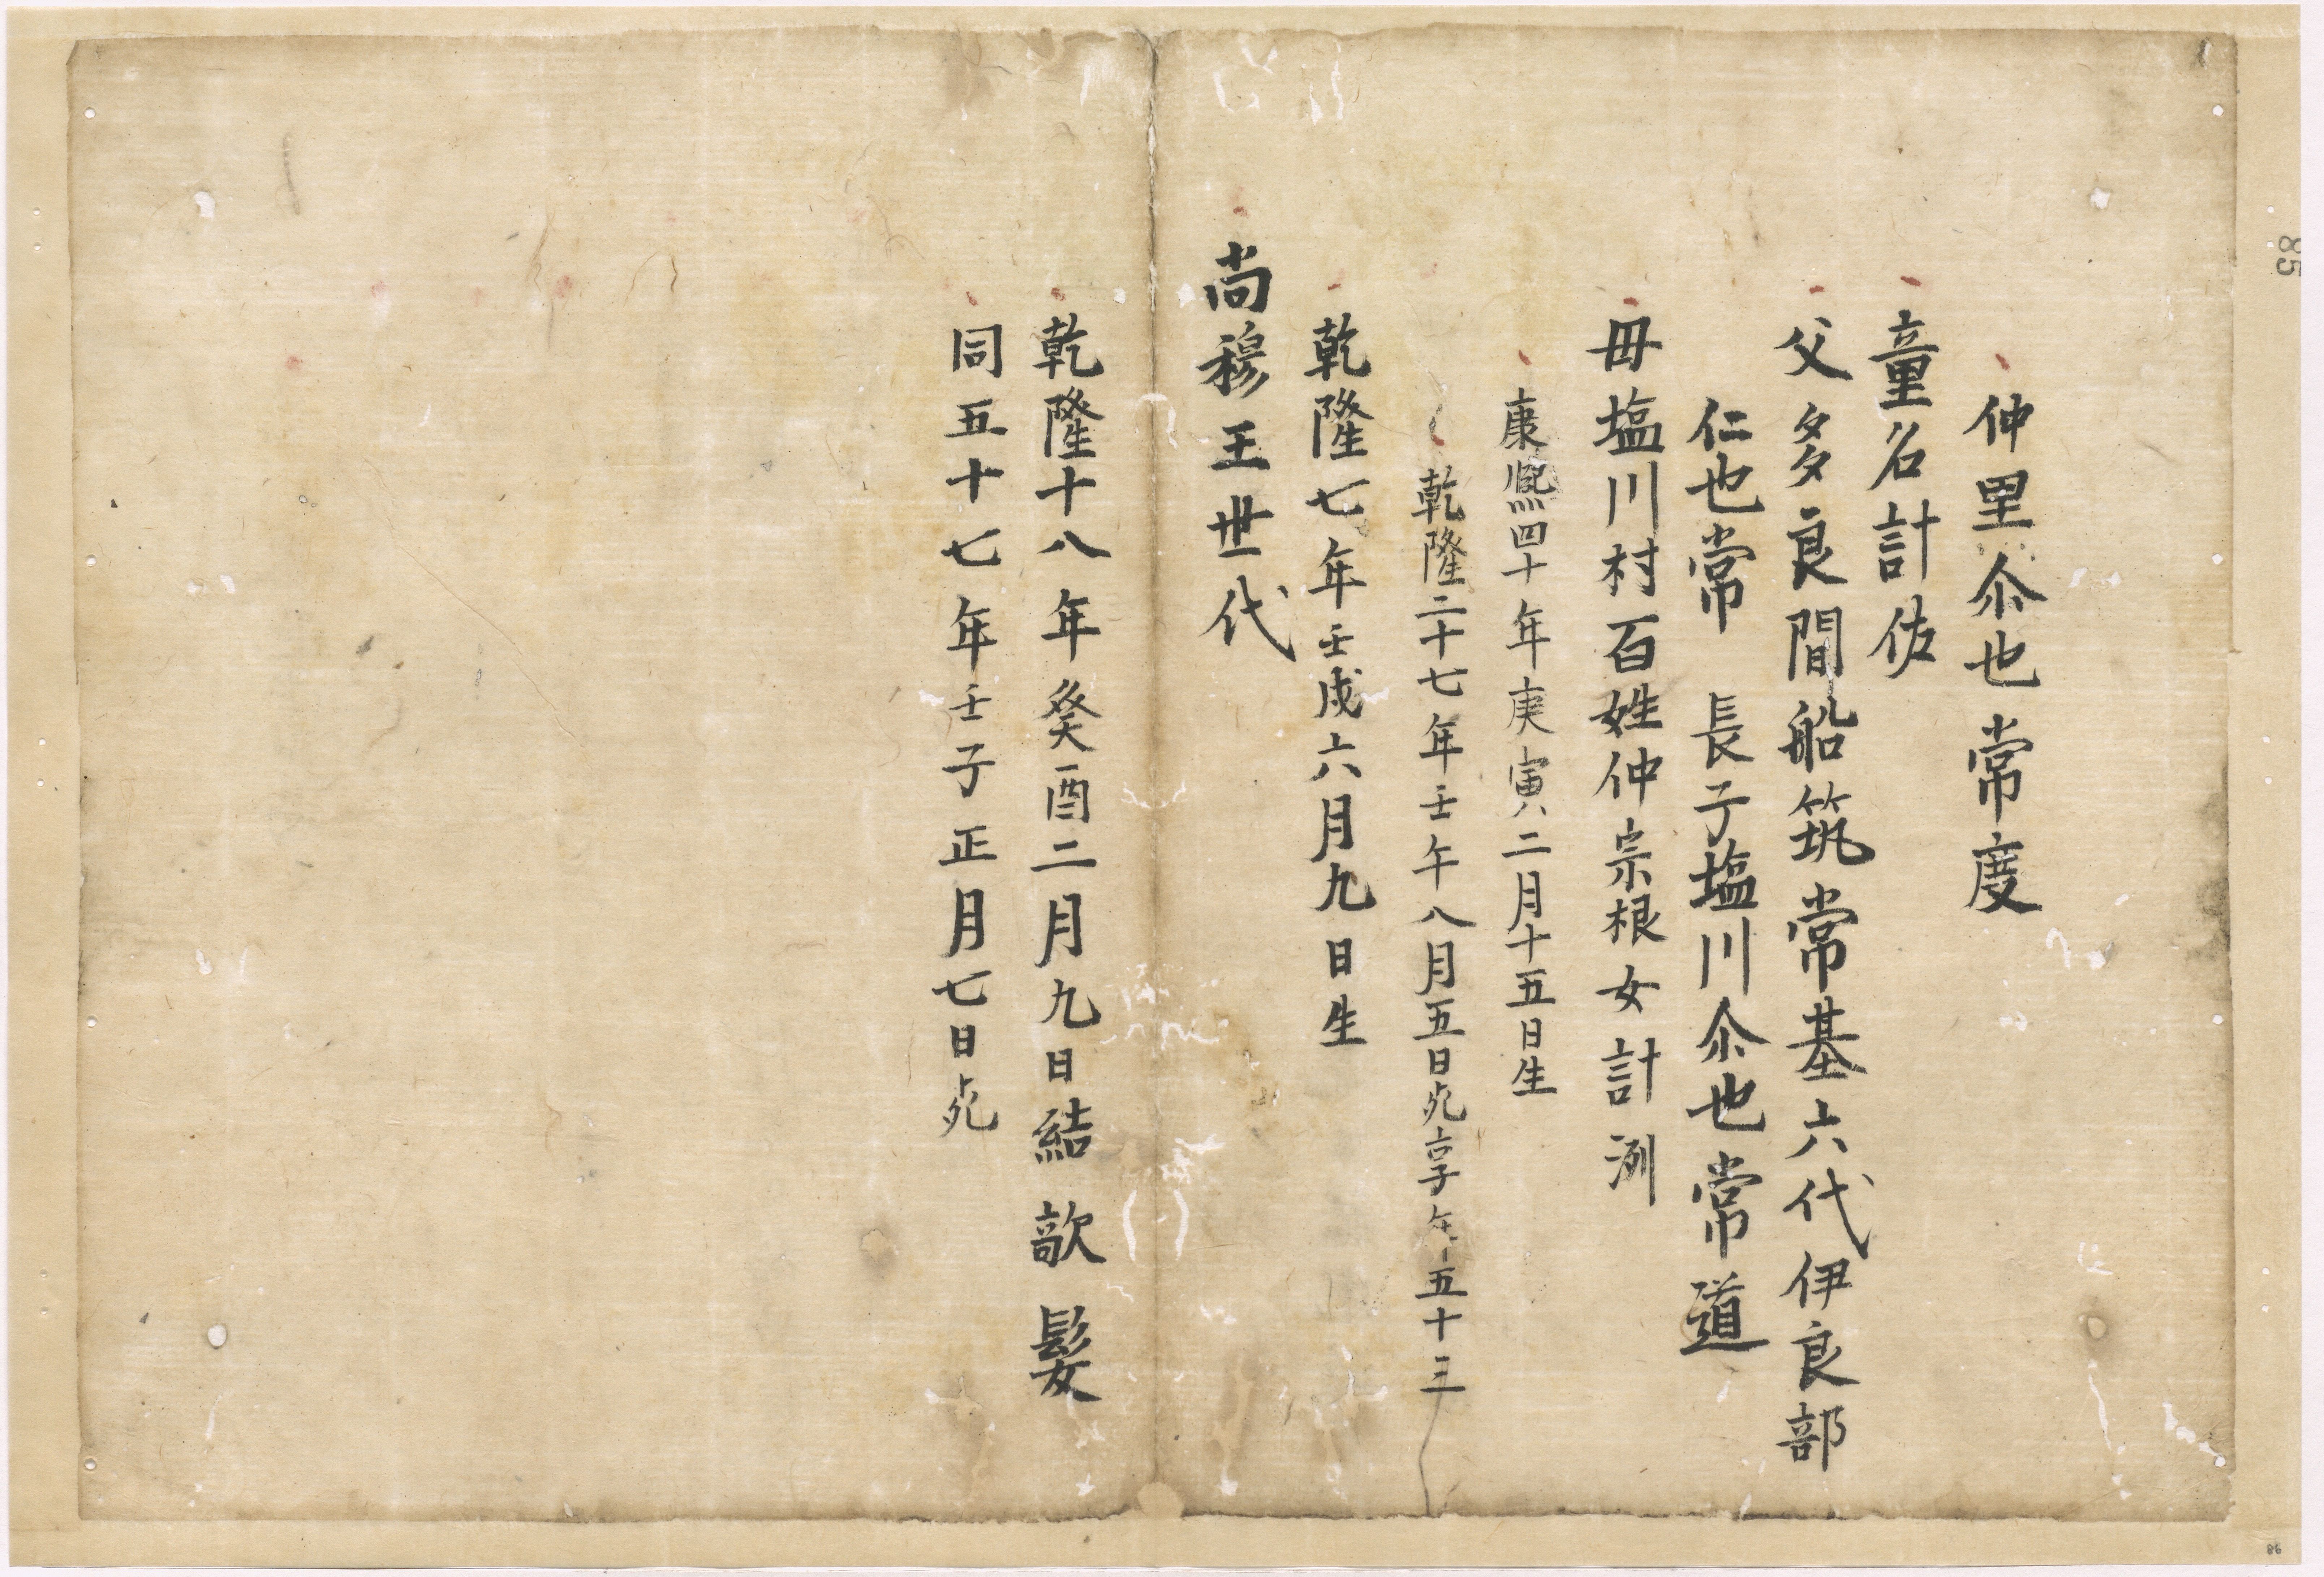 仲里尒也常度
童名計佐
父多良間船筑常基六代伊良部
仁也常 長子塩川尒也常道
毋塩川村百姓仲宗根女計渕
康熈四十年庚寅二月十五日生
乾隆二十七年壬午八月五日死享年五十三
乾隆七年壬戌六月九日生
尚穆王世代
乾隆十八年癸酉二月九日結欹髪
同五十七年壬子正月七日死
85
86